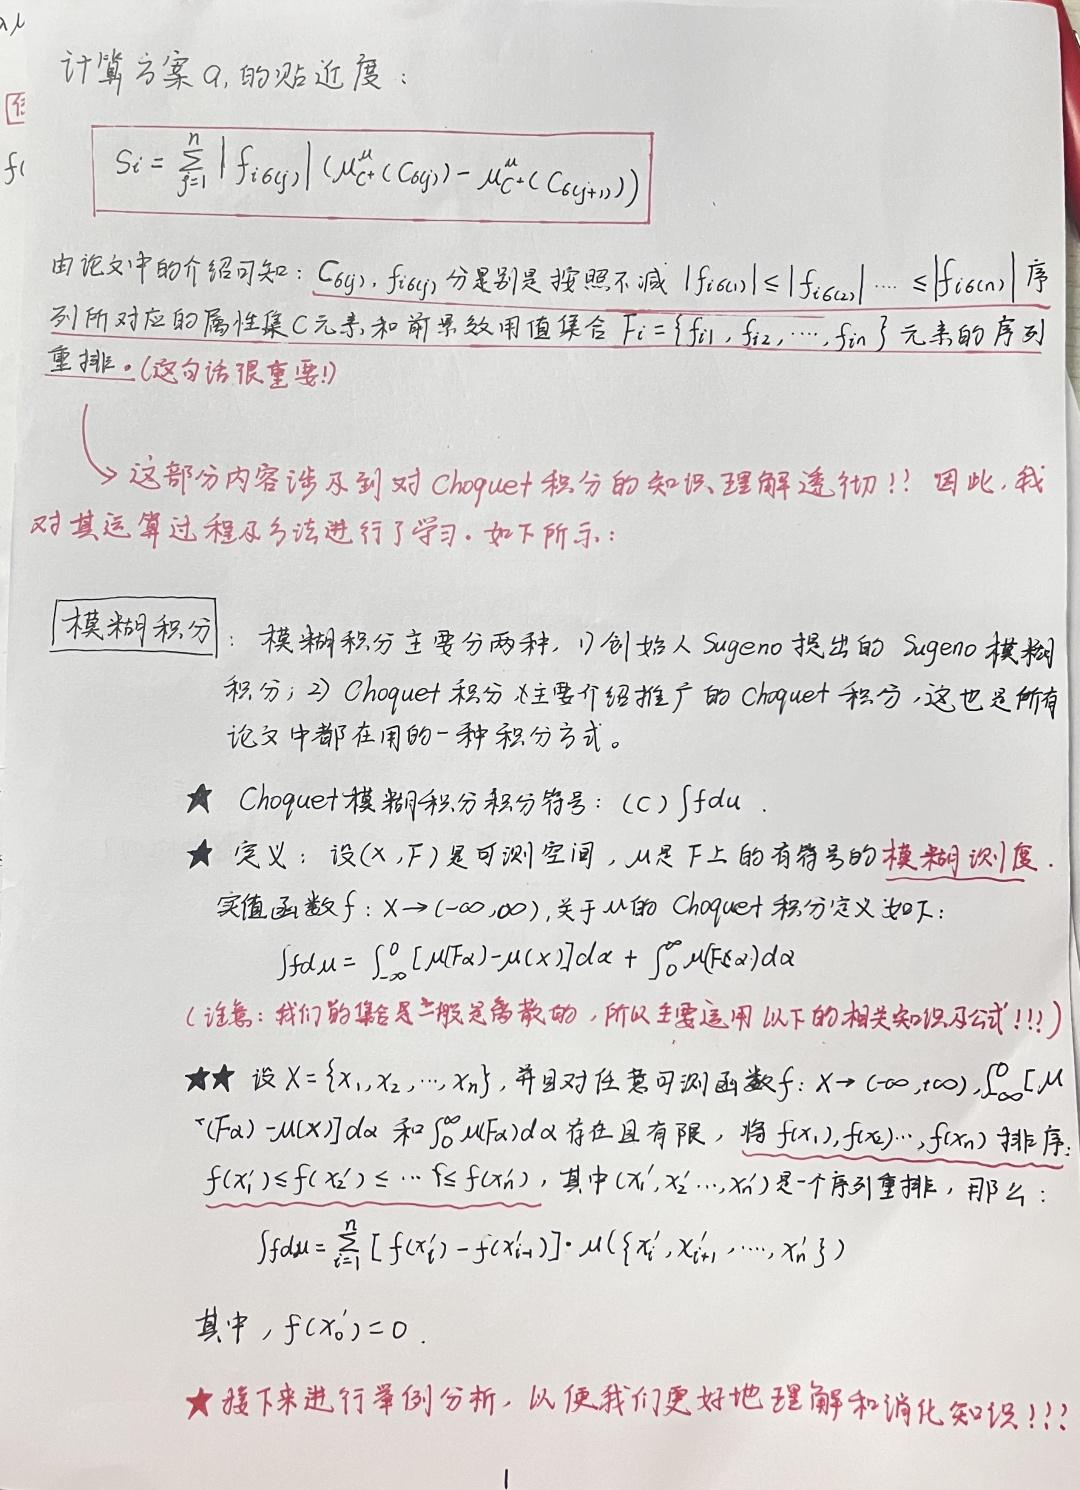 计算方案a₁的贴近度：
Si = ∑ⁿⱼ₌₁ |fiσ(j)| (μ^μ_C+(Cσ(j)) - μ^μ_C+(Cσ(j+1)))
由论文中的介绍可知：Cσ(j), fiσ(j) 分是别是按照不减 |fiσ(1)| ≤ |fiσ(2)| ···· ≤ |fiσ(n)| 序
列所对应的属性集C元素和前景效用值集合 Fi = {fi1, fi2, ····, fin} 元素的序列
重排。(这句话很重要!)
这部分内容涉及到对Choquet积分的知识理解透彻!! 因此，我
对其运算过程及方法进行了学习。如下所示：
模糊积分：模糊积分主要分两种，1) 创始人Sugeno提出的Sugeno模糊
积分；2) Choquet积分 主要介绍推广的Choquet积分，这也是所有
论文中都在用的一种积分方式。
★ Choquet模糊积分积分符号：(C)∫fdu .
★ 定义：设(X, F)是可测空间，μ是F上的有符号的模糊测度.
实值函数f：X→(-∞,∞),关于μ的Choquet积分定义如下：
∫fdμ = ∫⁰₋∞ [μ(Fα)-μ(X)]dα + ∫₀^∞ μ(Fα)dα
(注意：我们的集合是一般是离散的，所以主要运用以下的相关知识及公式!!!)
★★ 设X={x₁, x₂, ···, xn}, 并且对任意可测函数f：X→(-∞,+∞), ∫⁰₋∞[μ
(Fα)-μ(X)]dα 和 ∫₀^∞ μ(Fα)dα 存在且有限，将f(x₁), f(x₂)···, f(xn) 排序：
f(x₁′) ≤ f(x₂′) ≤ ··· ≤ f(xn′), 其中(x₁′, x₂′ ···, xn′)是一个序列重排，那么：
∫fdμ = ∑ⁿᵢ₌₁ [f(xi′) - f(x′i-1)]·μ({xi′, x′i+1, ····, xn′})
其中，f(x₀′)=0 .
★ 接下来进行举例分析，以便我们更好地理解和消化知识!!!
1